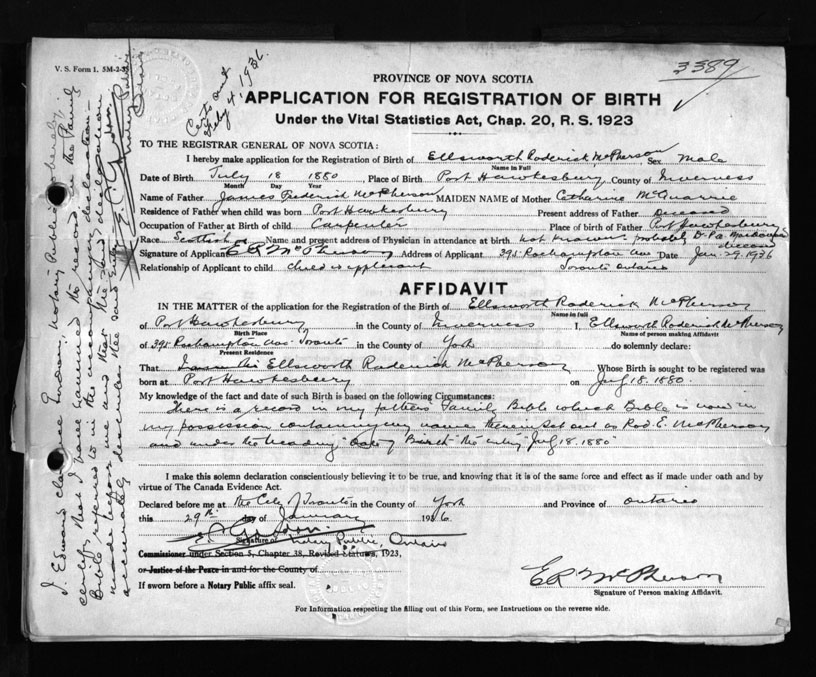 V. S. Form 1. 5M-2-3
3389
Cert sent
Feby 4, 1936.
PROVINCE OF NOVA SCOTIA
APPLICATION FOR REGISTRATION OF BIRTH
Under the Vital Statistics Act, Chap. 20, R. S. 1923
TO THE REGISTRAR GENERAL OF NOVA SCOTIA:
I hereby make application for the Registration of Birth of Ellsworth Roderick McPherson Sex Male
Name in Full
Date of Birth July 18 1880 Place of Birth Port Hawkesbury County of Inverness
Month Day Year
Name of Father James Frederick McPherson MAIDEN NAME of Mother Catharine McQuarrie
Residence of Father when child was born Port Hawkesbury Present address of Father Deceased
Occupation of Father at Birth of child Carpenter Place of birth of Father Port Hawkesbury
Race Scottish Name and present address of Physician in attendance at birth not known probably Dr. P.A. deceased
Signature of Applicant E R McPherson Address of Applicant 395 Roehampton Ave Date Jan. 29. 1936
Relationship of Applicant to child child is applicant Toronto Ontario
AFFIDAVIT
IN THE MATTER of the application for the Registration of the Birth of Ellsworth Roderick McPherson
Name in full
of Port Hawkesbury in the County of Inverness I, Ellsworth Roderick McPherson
Birth Place Name of person making Affidavit
of 395 Roehampton Ave Toronto in the County of York do solemnly declare:
Present Residence
That Ellsworth Roderick McPherson Whose Birth is sought to be registered was
born at Port Hawkesbury on July 18. 1880.
My knowledge of the fact and date of such Birth is based on the following Circumstances:
There is a record in my fathers Family Bible which Bible is now in
my possession containing my name therein set out as Rod. E. McPherson
and under the heading "Date of Birth" the entry "July 18. 1880"
I make this solemn declaration conscientiously believing it to be true, and knowing that it is of the same force and effect as if made under oath and by
virtue of The Canada Evidence Act.
Declared before me at the City of Toronto in the County of York and Province of Ontario
this 29th day of January 1936
Signature of Notary Public, Ontario
Commissioner under Section 5, Chapter 38, Revised Statutes, 1923,
or Justice of the Peace in and for the County of
If sworn before a Notary Public affix seal.
E R McPherson
Signature of Person making Affidavit.
For Information respecting the filling out of this Form, see Instructions on the reverse side.
I, Edward Clarence Gordon, Notary Public, hereby
certify that I have examined the record in the Family
Bible referred to in the accompanying declaration
made before me and that the said declaration
accurately describes the said entry. E. C. Gordon
Notary Public
Ontario